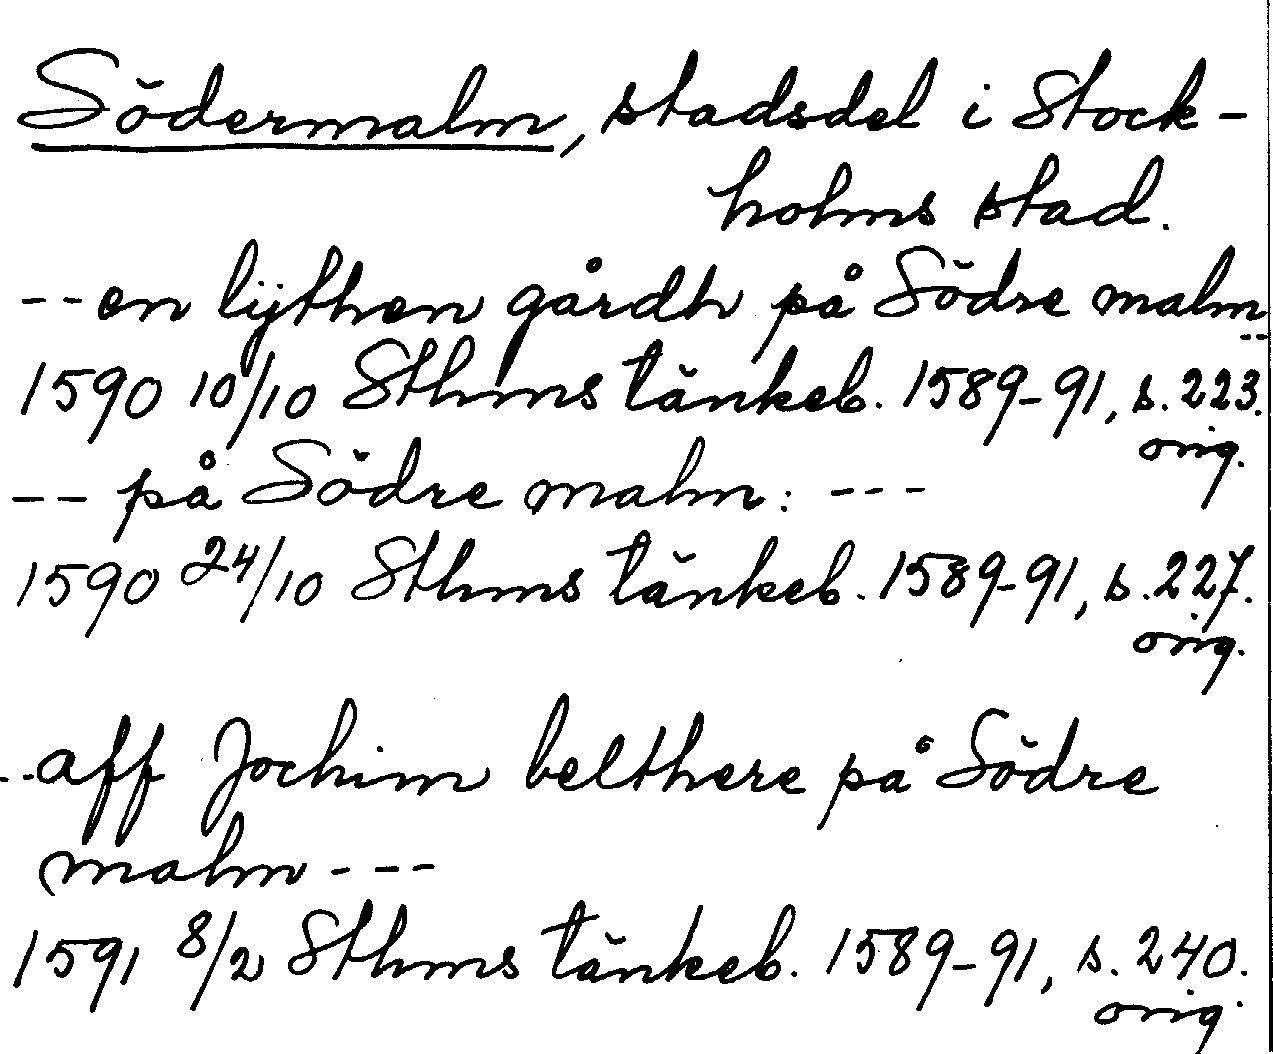 Södermalm, stadsdel i Stock-
holms stad.
-- en lijthen gårdh på Södre malm --
1590 10/10 Sthms tänkeb. 1589-91, s. 223.
orig.
-- på Södre malm: ---
1590 24/10 Sthms tänkeb. 1589-91, s. 227.
orig.
-- aff Jochim belthere på Södre
malm ---
1591 8/2 Sthms tänkeb. 1589-91, s. 240.
orig.